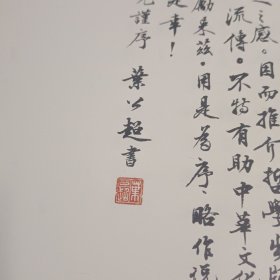 之感。因而推介哲學出
流傳。不特有助中華文化
勵來茲。用是為序、略作
是幸！
謹序
葉公超書